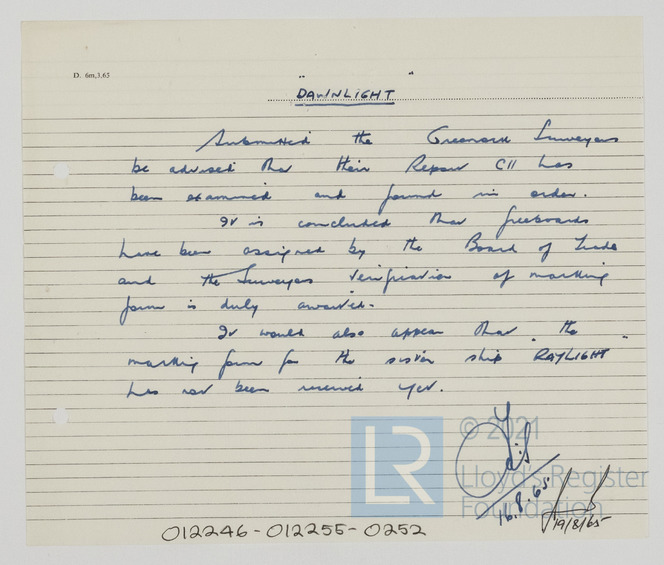 D. 6m,3,65
"DAWNLIGHT"
Submitted the Greenock Surveyors
be advised that their Report C11 has
been examined and found in order.
It is concluded that freeboards
have been assigned by the Board of Trade
and the Surveyors verification of marking
form is duly awaited.
It would also appear that the
marking form for the sister ship "RAYLIGHT"
has not been received yet.
© 2021
LR
Lloyd's Register
Foundation
16.8.65
19/8/65
012246-012255-0252